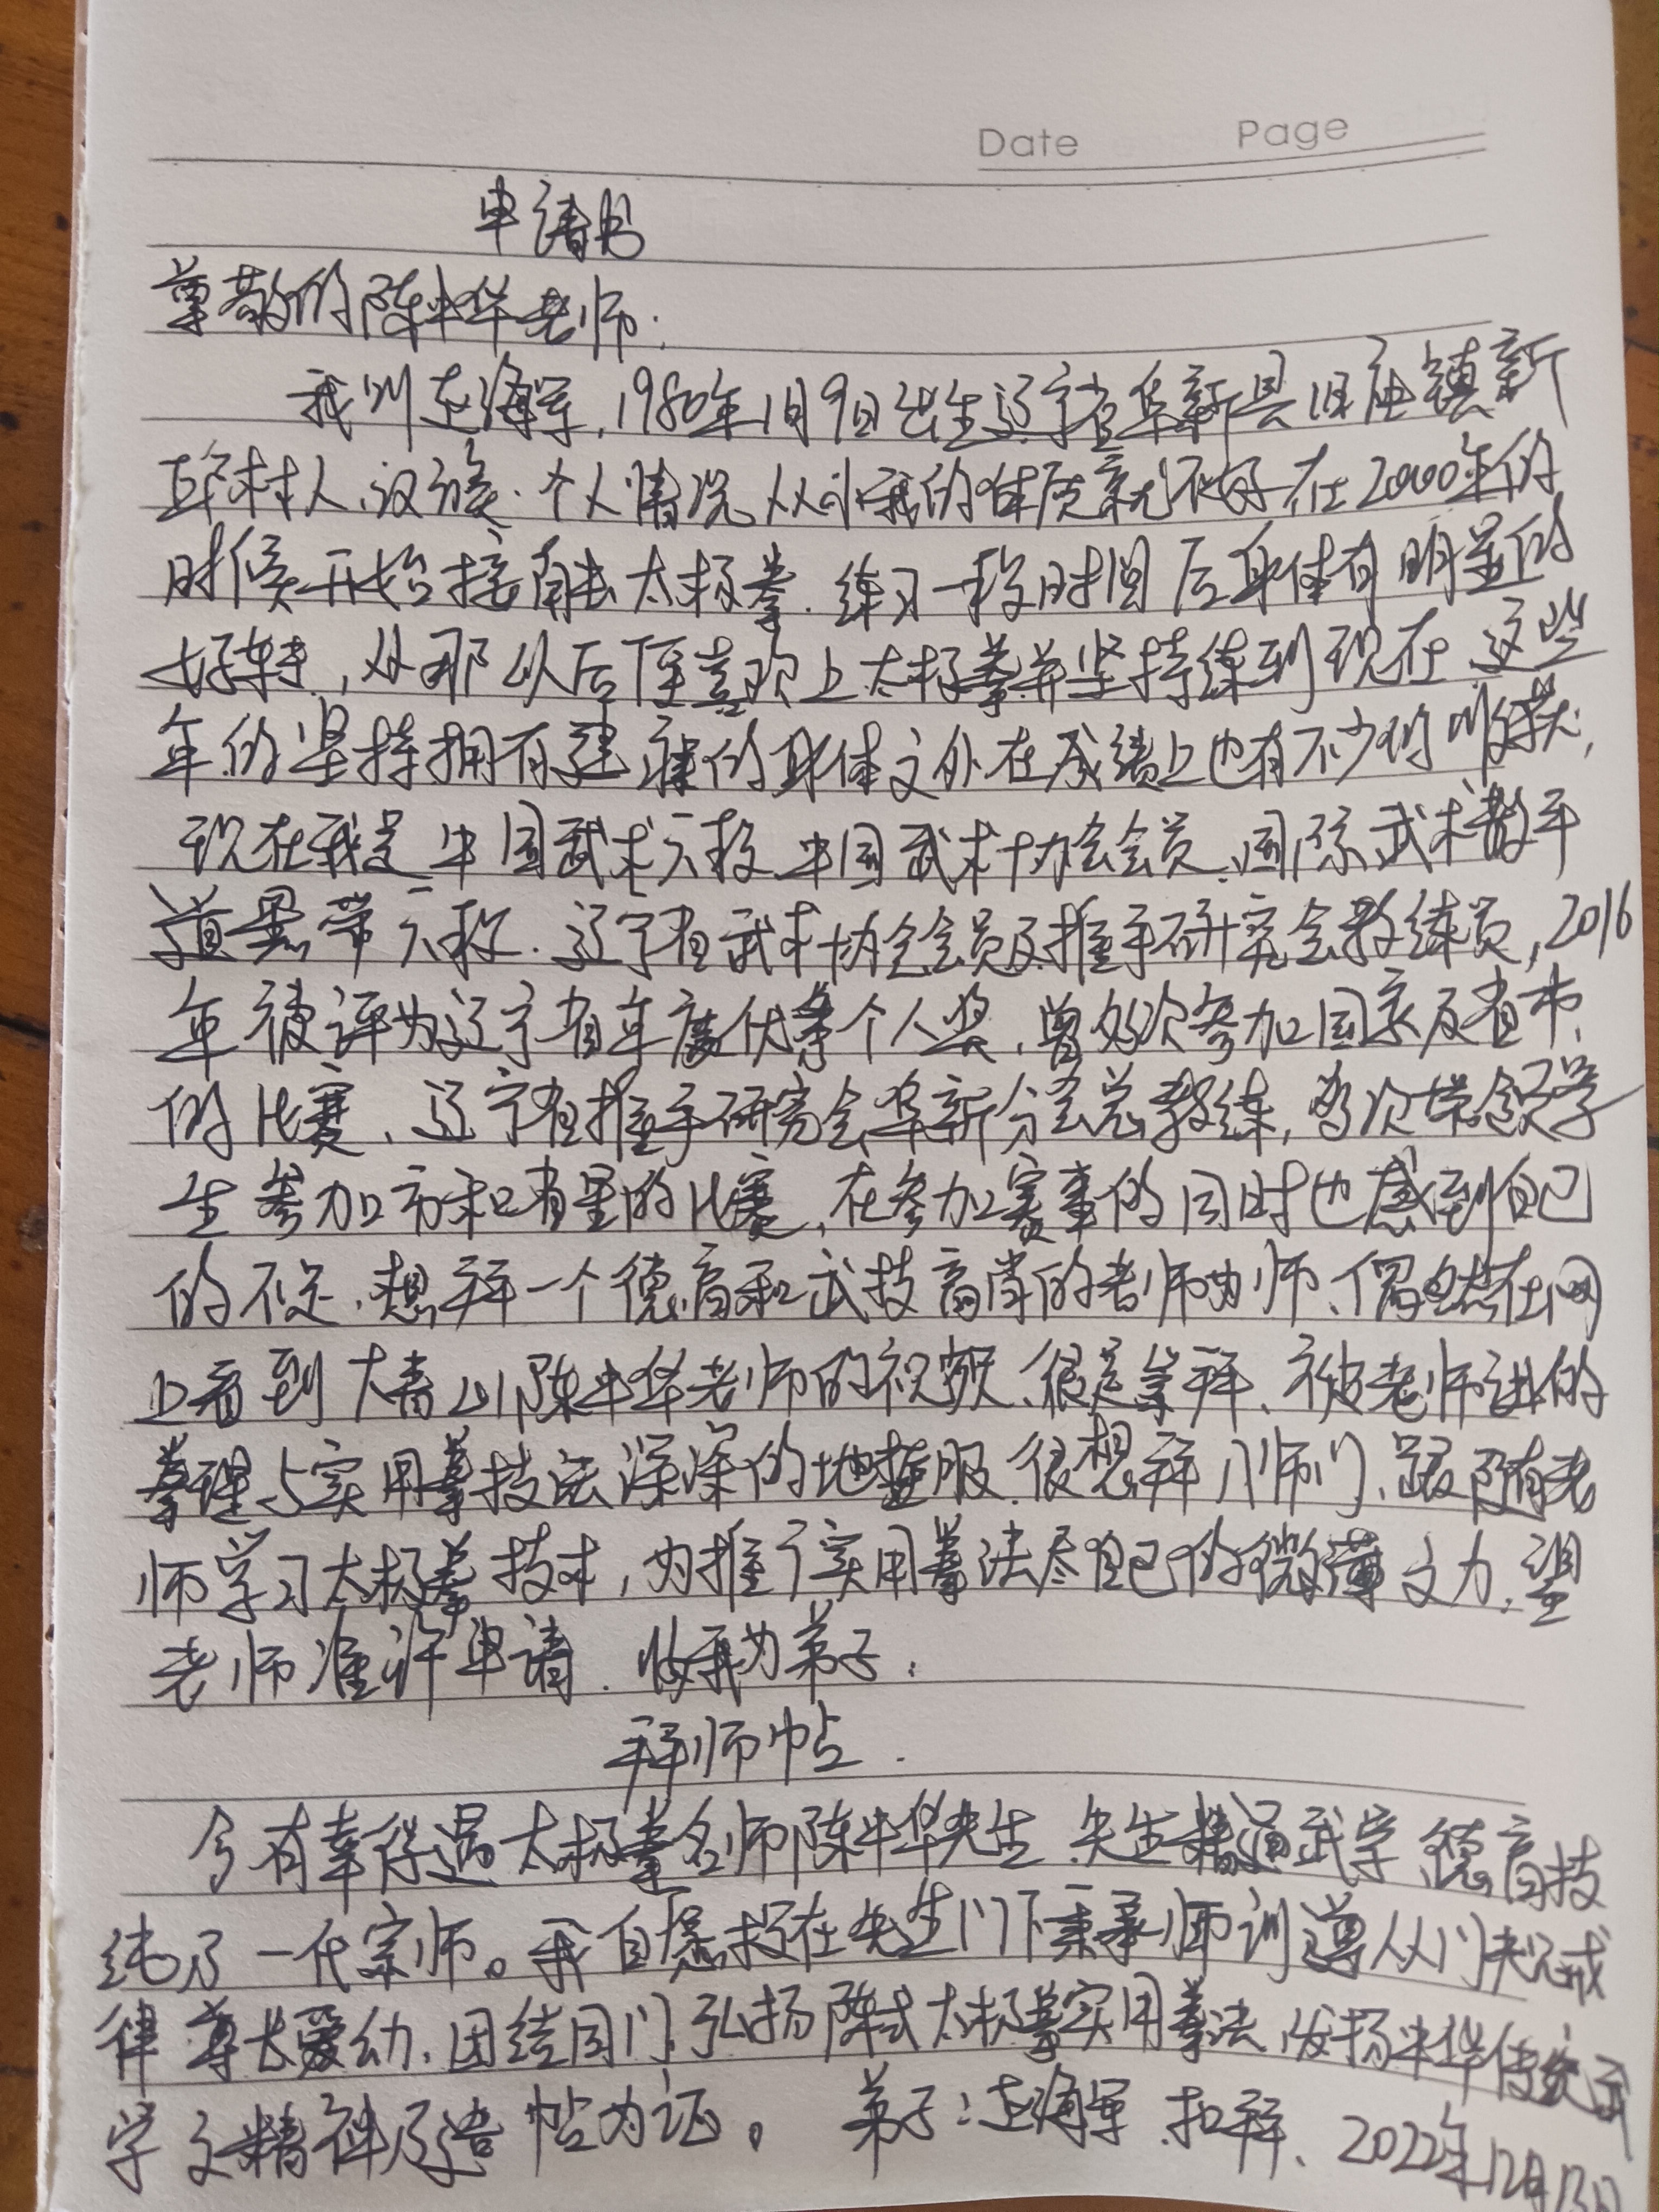 Date Page
申请书
尊敬的陈中华老师:
我叫 海军,1980年1月9日出生辽宁省阜新县旧庙镇新
村人、汉族.个人情况从小我的体质就不好在2000年的
时候开始接触太极拳.练习一段时间后身体有明显的
好转,从那以后便喜欢上太极拳并坚持练到现在 这些
年的坚持拥有健康的身体之外在成绩上也有不少的收获,
现在我是中国武术六段 中国武术协会会员、国际武术散手
道黑带六段.辽宁省武术协会会员及推手研究会教练员,2016
年被评为辽宁省年度优秀个人奖,曾多次参加国家及省市、
的比赛、辽宁省推手研究会阜新分会总教练,多次带领学
生参加市和省里的比赛,在参加赛事的同时也感到自己
的不足.想拜一个德高和武技高尚的老师为师、偶然在网
上看到大青山陈中华老师的视频、很是崇拜、被老师讲的
拳理与实用拳技法深深的地 服.很想拜入师门、跟随老
师学习太极拳技术,为推广实用拳法尽自己的微薄之力,望
老师准许申请.收我为弟子.
拜师帖.
今有幸得遇太极拳名师陈中华先生 先生精通武学 德高技
纯乃一代宗师。我自愿投在先生门下秉承师训遵从门规戒
律 尊长爱幼.团结同门 弘扬陈式太极拳实用拳法 发扬中华传统武
学之精神 帖为证。 弟子: 海军 扣拜、2022年12月12日